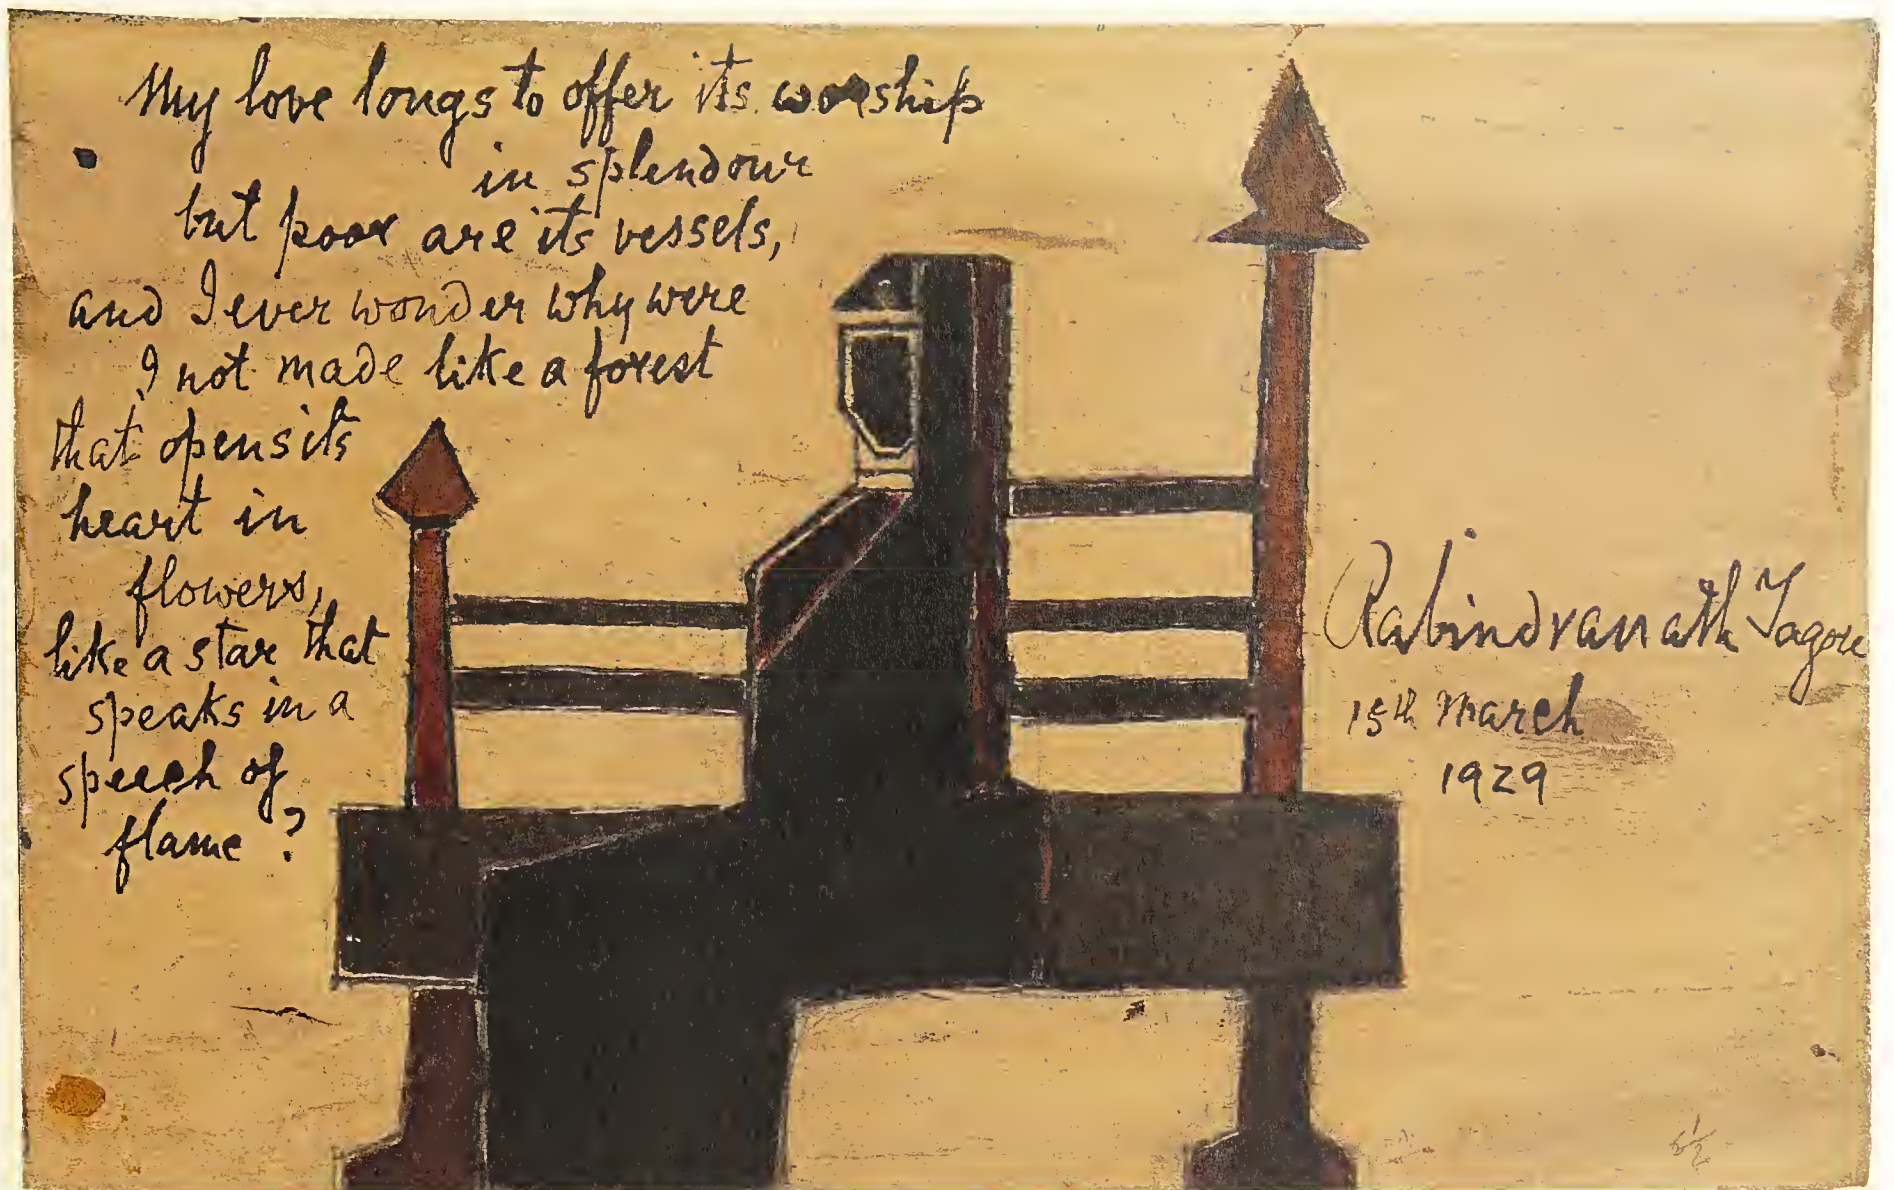 My love longs to offer its worship
in splendour
but poor are its vessels,
and I ever wonder why were
I not made like a forest
that opens its
heart in
flowers,
like a star that
speaks in a
speech of
flame ?
Rabindranath Tagore
15th March
1929